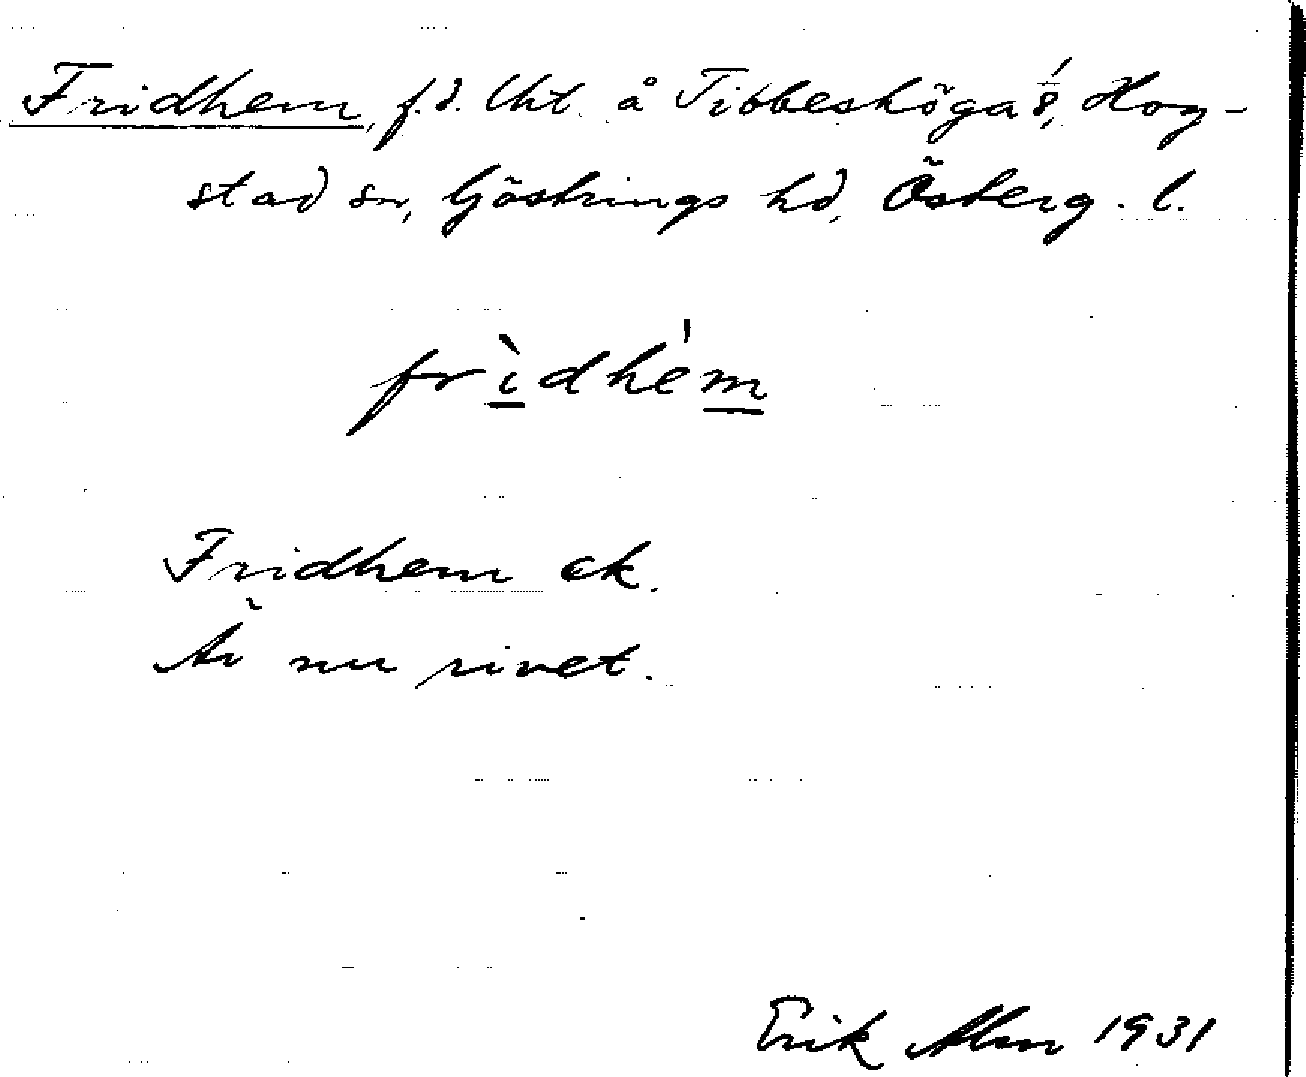 Fridhem, f.d. lht. å Tibbeshöga 1/8, Hog-
stad sn, Göstrings hd, Österg. l.
fr̀idhe̍m
Fridhem ek.
Är nu rivet.
Erik Alm 1931